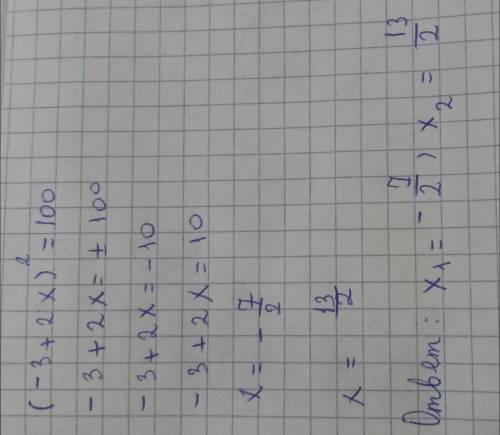 (-3+2x)² = 100
-3+2x = ± 10⁰
-3+2x = -10
-3+2x = 10
x = - 7/2
x = 13/2
Ответ: x₁ = - 7/2 ) x₂ = 13/2